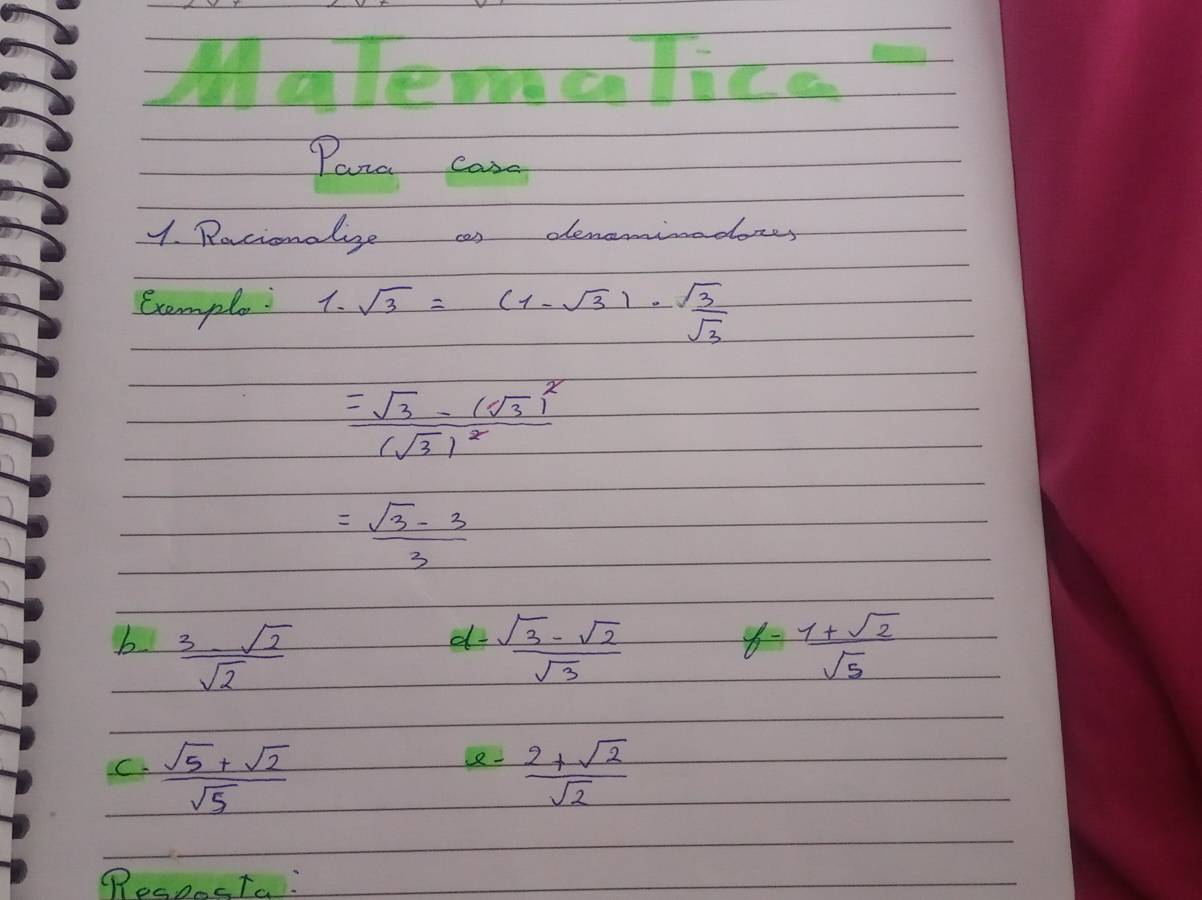 Matematica -
Para casa
1. Racionalize os denominadores
Exemplo: 1-√3 = (1-√3) . √3/√3
= √3 - (√3)²/(√3)²
= √3 - 3/3
b. 3-√2/√2 d- √3-√2/√3 f- 1+√2/√5
c- √5+√2/√5 e- 2+√2/√2
Resposta: